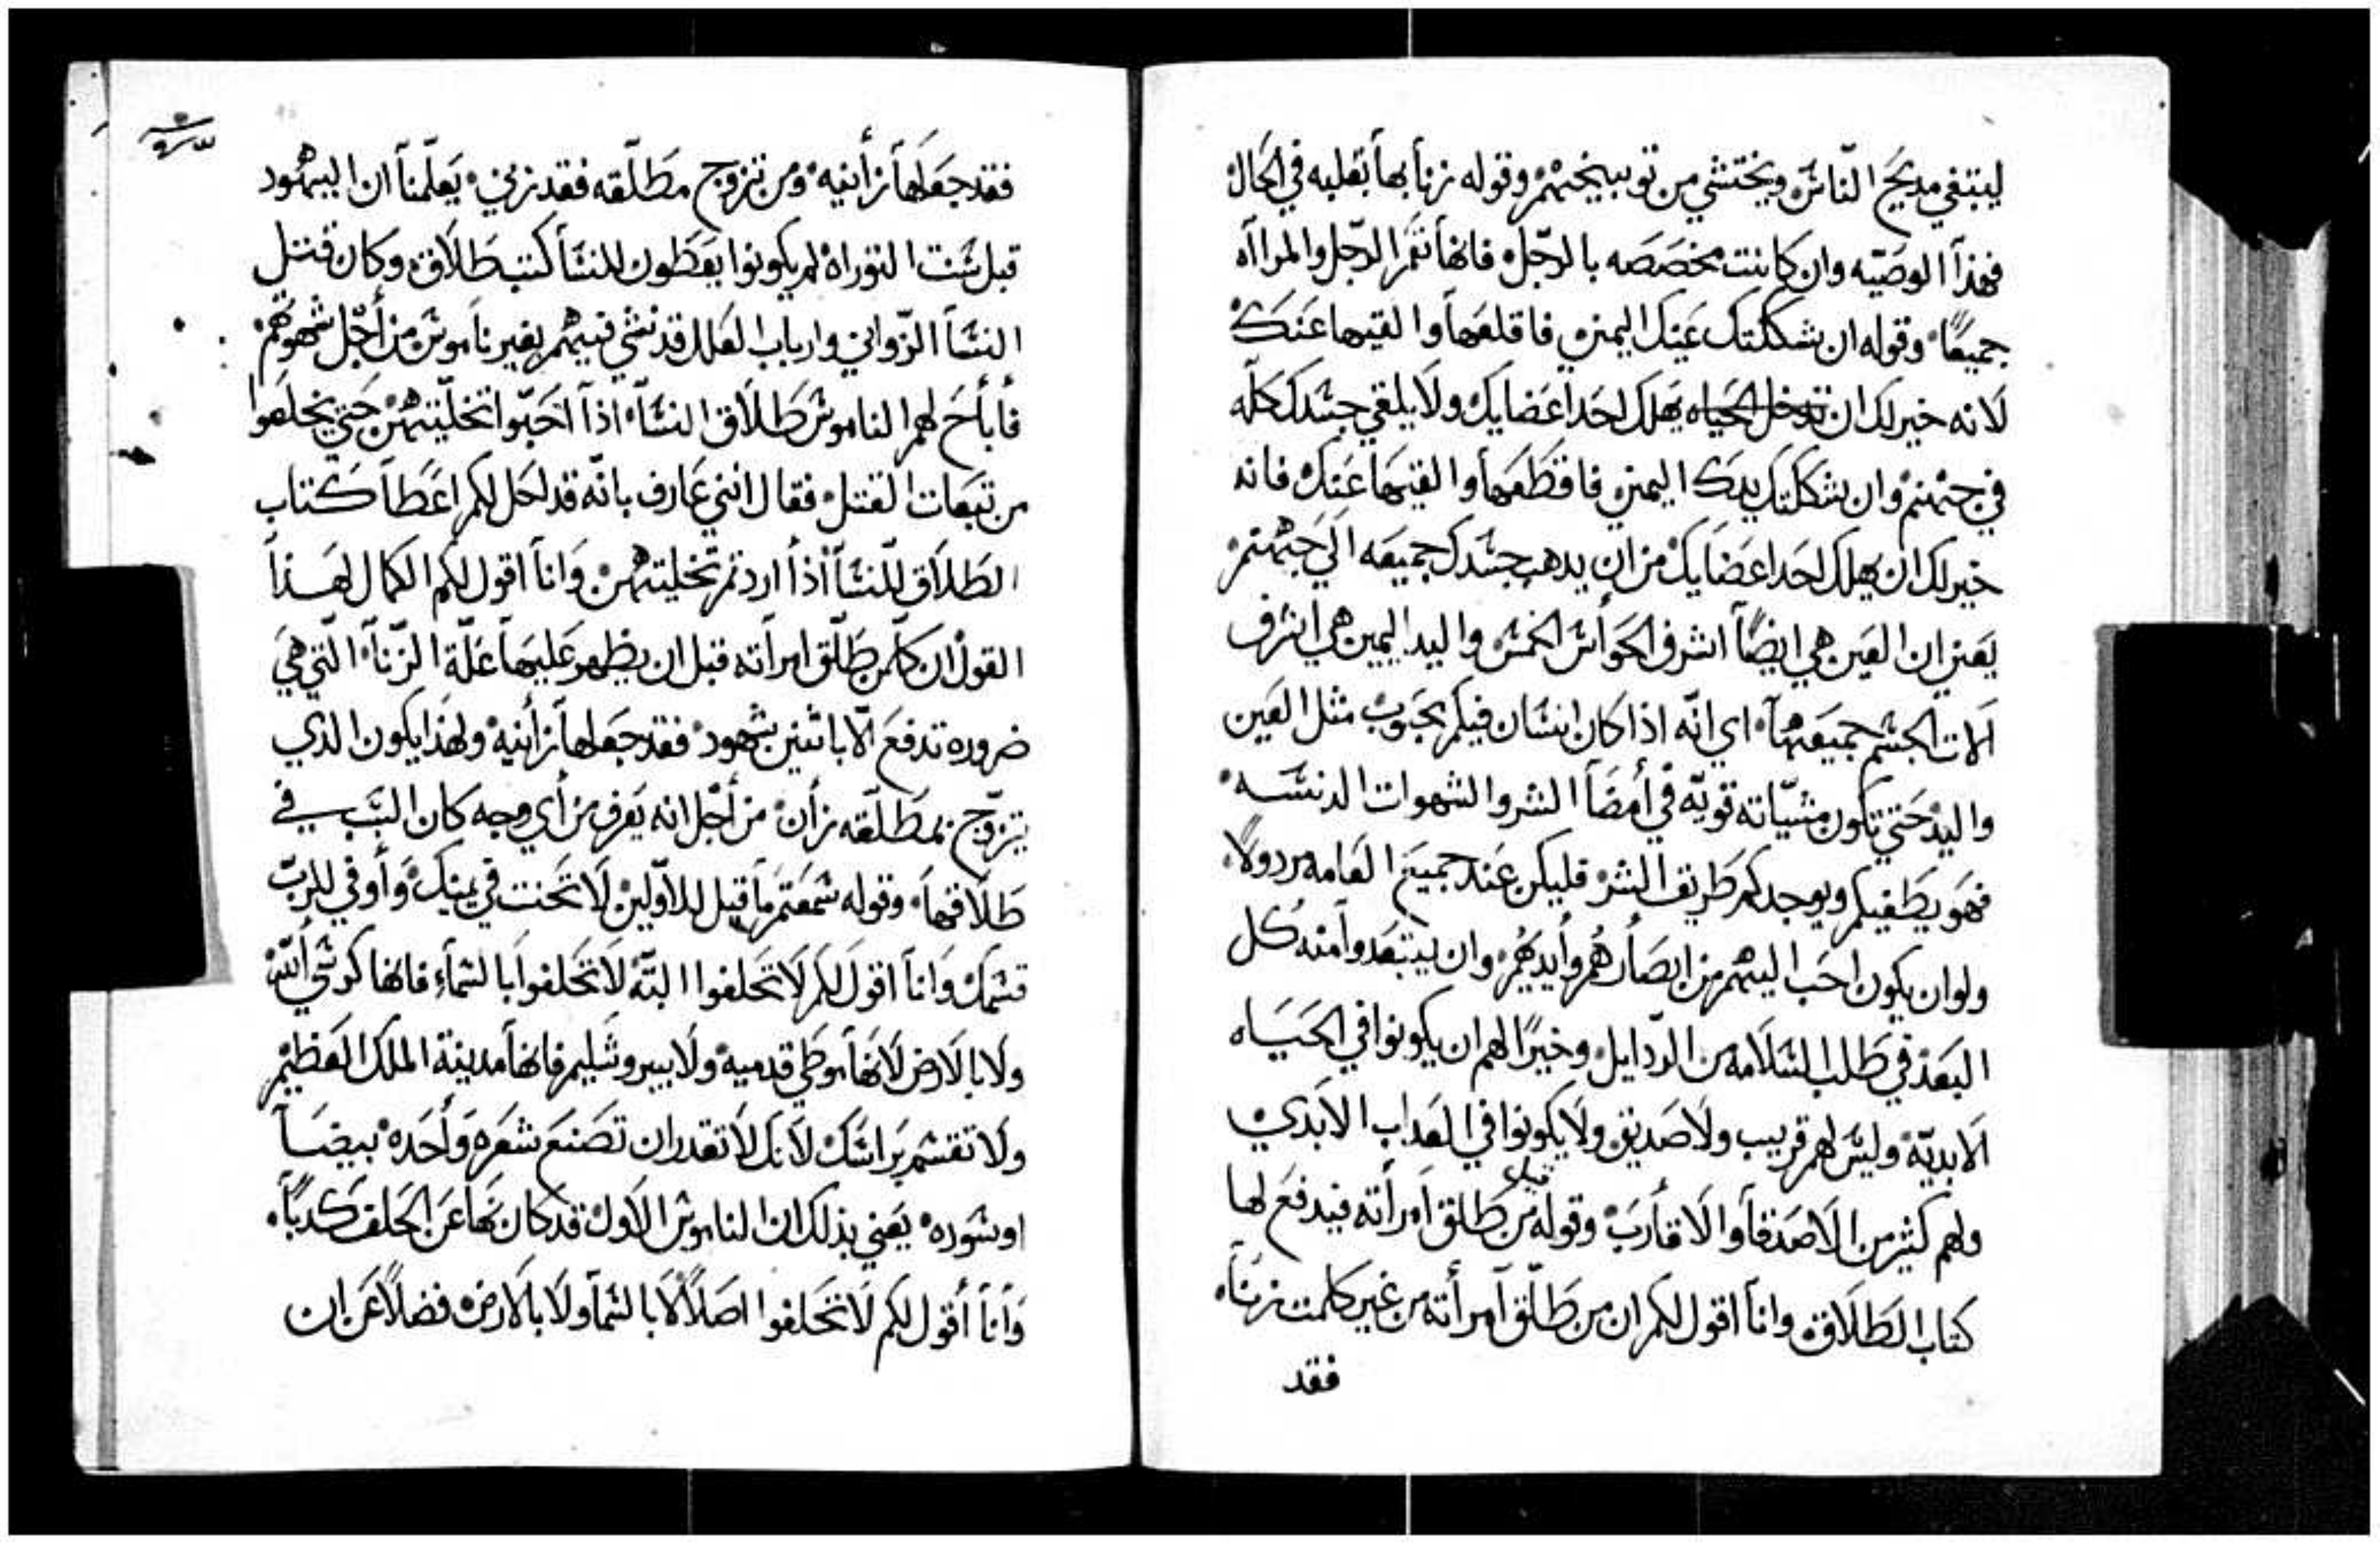 ليبتغي مديح الناس ويختشي من توبيخهم وقوله زنا بها بقلبه في الحال
فهذا الوصيه وان كانت مخصصه بالرجل فانها تعم الرجل والمرااه
جميعًا وقوله ان شككتك عينك اليمني فاقلعها والقيها عنك
لانه خير لك ان تدخل الحياه يهلك احد اعضايك ولا يلقي جسدك كله
في جهنم وان شككتك يدك اليمني فاقطعها والقيها عنك فانه
خير لك ان يهلك احد اعضايك من ان يدهب جسدك جميعه الي جهنم
يعني ان العين هي ايضًا اشرف الحواس الخمس واليد اليمين هي اشرف
الات الجسم جميعها اي انه اذا كان انسان فيكم محبوب مثل العين
واليد حتي تكون مشيّاته قويّه في أمضا الشر والشهوات الدنسه
فهو يطغيكم ويوجدكم طريق الشر فليكن عند جميع العامه مردولًا
ولو ان يكون احب اليهم من ابصارهم وأيديهم وان يبتعدوا منه كل
البعد في طلب السلامه من الردايل وخيرًا لهم ان يكونوا في الحياه
الابديّه وليس لهم قريب ولا صديق ولا يكونوا في العداب الابدي
ولهم كثير من الاصدقا والاقارب وقوله قيل من طلق امرأته فيدفع لها
كتاب الطلاق وانا اقول لكم ان من طلّق امرأته من غير كلمت زناه
فقد
فقد جعلها زأنيه ومن تزوج مطلّقه فقد زني يعلّمنا ان اليهود
قبل سنت التوراه لم يكونوا يعطون للنسا كتب طلاق وكان قتل
النسا الزّواني وارباب العلل قد نشي فيهم بغير ناموس من أجل شهوتهم
فأباح لهم الناموس طلاق النسا اذا احبّوا تخليتهن حتي يخلصوا
من تبعات القتل فقال انني عارف بانّه قد احل لكم اعطا كتاب
الطلاق للنسا أذا اردتم تخليتهن وانا اقول لكم الكمال لهذا
القول ان كلّمن طلّق امرأته قبل ان يظهر عليها علّة الزّنا الّتي هي
ضروره تدفع الّا باثنين شهود فقد جعلها زأنيه ولهذا يكون الدي
يتزوّج بمطلّقه زأن من أجل انه يعرف من أي وجه كان السّبب في
طلاقها وقوله سمعتم ما قيل للاوّلين لا تحنت في يمينك وأوفي للربّ
قسمك وانا اقول لكم لا تحلفوا البتّه لا تحلفوا بالسّماء فانها كرسي اللّه
ولا بالارض لانها موطي قدميه ولا بيروشليم فانها مدينة الملك العظيم
ولا تقسم براسك لانك لا تقدر ان تصنع شعره وأحده بيضا
او سوده يعني بذلك ان الناموس الاول قد كان نها عن الحلف كدبًا
وأنا أقول لكم لا تحلفوا اصلًا لا بالسّما ولا بالارض فضلًا عن ان